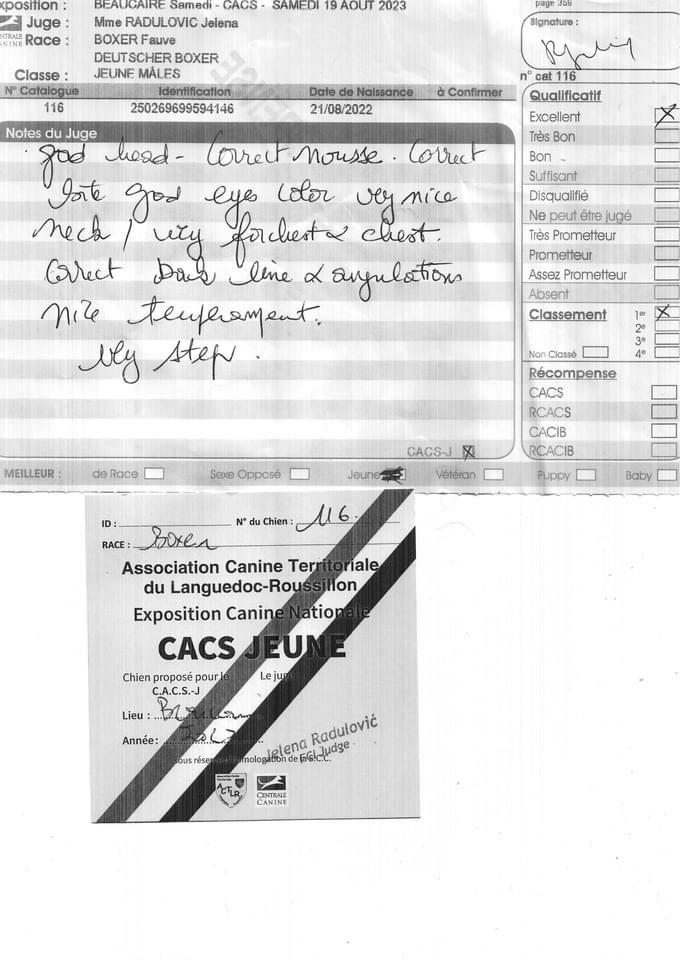 xposition : BEAUCAIRE Samedi - CACS - SAMEDI 19 AOUT 2023
page 359
Juge : Mme RADULOVIC Jelena
Signature :
CENTRALE CANINE
Race : BOXER Fauve
DEUTSCHER BOXER
Classe : JEUNE MÂLES
n° cat 116
N° Catalogue Identification Date de Naissance à Confirmer
116 250269699594146 21/08/2022
Notes du Juge
god head - Correct mousse. Correct
god eyes color very nice
neck / very forchest & chest.
Correct back line & angulations
nice temperament.
very step.
Qualificatif
Excellent X
Très Bon
Bon
Suffisant
Disqualifié
Ne peut être jugé
Très Prometteur
Prometteur
Assez Prometteur
Absent
Classement 1er X
2e
3e
Non Classé 4e
Récompense
CACS
RCACS
CACIB
RCACIB
CACS-J X
MEILLEUR : de Race Sexe Opposé Jeune Vétéran Puppy Baby
ID : N° du Chien : 116
RACE : Boxer
Association Canine Territoriale
du Languedoc-Roussillon
Exposition Canine Nationale
CACS JEUNE
Chien proposé pour le Le juge
C.A.C.S.-J
Lieu :
Année : 2023
Jelena Radulović
FCI Judge
sous réserve d'homologation de la S.C.C.
ACTLR
CENTRALE
CANINE